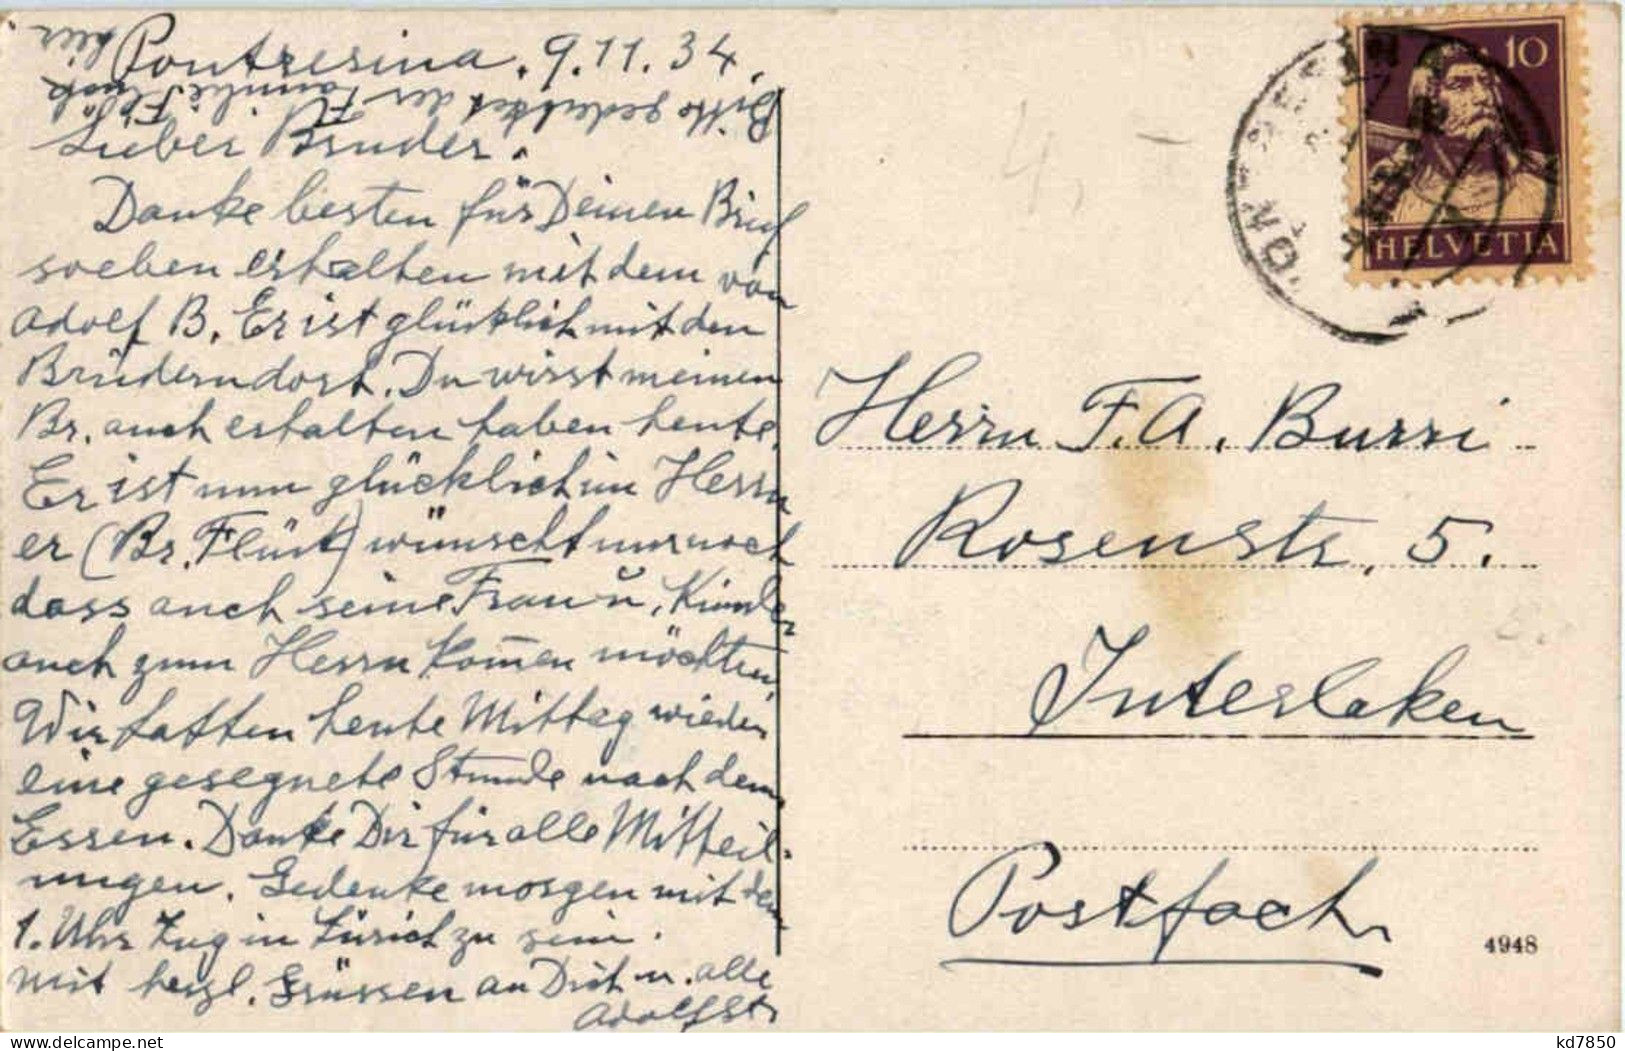 Pontresina. 9.11.34.
hier
Bitte gedenket der Familie
Lieber Bruder.
Danke besten für Deinen Brief
soeben erhalten mit dem von
Adolf B. Er ist glücklich mit den
Brüdern dort. Du wirst meinen
Br. auch erhalten haben heute.
Er ist nun glücklich im Herrn
er (Br. Flütt) wünscht nur noch
dass auch seine Frau u. Kinder
auch zum Herrn kom̄en möchten.
Wir hatten heute Mittag wieder
eine gesegnete Stunde nach dem
Essen. Danke Dir für alle Mitteil-
ungen. Gedenke morgen mit dem
1. Uhr Zug in Zürich zu sein.
mit herzl. Grüssen an Dich u. alle
Adolf St
10
HELVETIA
Herrn F. A. Burri
Rosenstr. 5.
Interlaken
Postfach
4948
kd7850